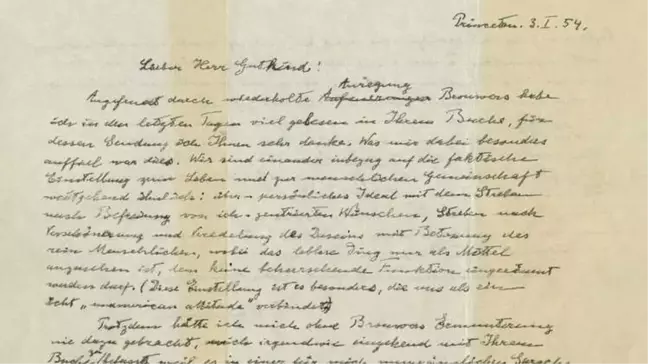 Princeton. 3. I. 54.
Lieber Herr Gutkind!
Anregung
Angefeuert durch wiederholte Brouwers habe
ich in den letzten Tagen viel gelesen in Ihrem Buche, für
dessen Sendung ich Ihnen sehr danke. Was mir dabei besonders
auffiel war dies. Wir sind einander inbezug auf die faktische
Einstellung zum Leben und zur menschlichen Gemeinschaft
weitgehend ähnlich: über-persönliches Ideal mit dem Streben
nach Befreiung von ich-zentrierten Wünschen, Streben nach
Verschönerung und Veredelung des Daseins mit Betonung des
rein Menschlichen, wobei das leblose Ding nur als Mittel
anzusehen ist, dem keine beherrschende Funktion eingeräumt
werden darf. (Diese Einstellung ist es besonders, die uns als ein
echt „unamerican attitude" verbindet)
Trotzdem hätte ich mich ohne Brouwers Ermunterung
nie dazu gebracht, mich irgendwie eingehend mit Ihrem
Buche zu weil es in einer für mich unzugänglichen Sprache